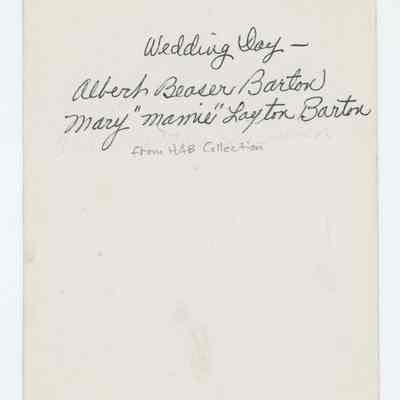 Wedding Day —
Albert Beaser Barton
Mary "Mamie" Layton Barton
from HAB Collection